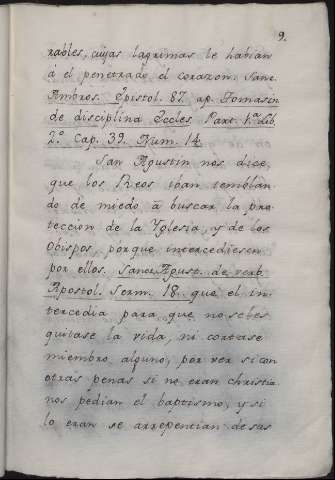 9.
rables, cuyas lagrimas le habian
á el penetrado el corazon. Sanc.
Ambros. Epistol. 87. ap. Tomasin
de disciplina Eccles. Part. 1.ª Lib.
2.º Cap. 39. Num. 14.
San Agustin nos dice,
que los Reos iban temblan-
do de miedo á buscar la pro-
teccion de la Yglesia, y de los
Obispos, porque intercediesen
por ellos. Sanc. Agust. de verb.
Apostol. Serm. 18. que el in-
tercedia para que no se les
quitase la vida, ni cortase
miembro alguno, por ver si con
otras penas si no eran christia-
nos pedian el baptismo, y si
lo eran se arrepentian de sus